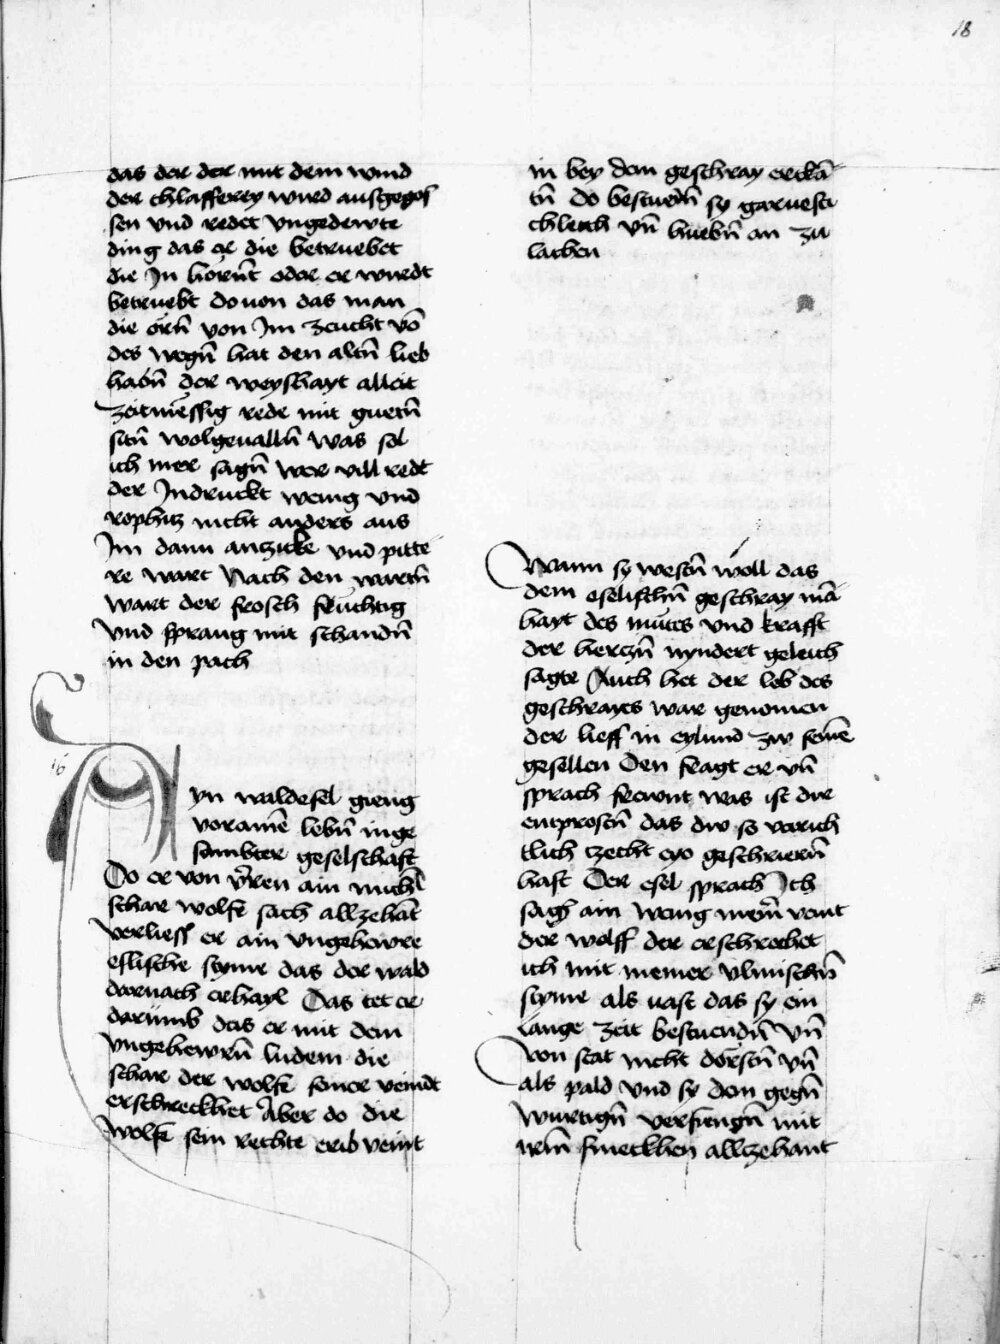 18
das der der mit dem wind
der chlafferey wurd ausgegos
sen vnd redet vngedewte
ding das er die betruebet
die In hörnt oder er wurdt
betruebt douon das man
die örn̄ von Im zeucht vō
des wegn̄ hat den altn̄ lieb
habn̄ der weyshayt alleit
zeitmessig rede mit guetn̄
sitn̄ wolgeualln̄ was sol
ich mer sagn̄ wer vill redt
der Indruckt wenig vnd
rophitz nicht anders aus
Im dann anzicke vnd pitte
re wart Nach den wartn̄
wart der frosch fluchtig
vnd sprang mit schandn̄
in den pach
16
Ayn waldesel gieng
voraine lebn̄ in ge
sambter geselschaft
Do er von v̄ren ain michl
schar wolfe sach allzehāt
verliess er ain vngehewre
eslische styme das der wald
darnach erhayl Das tet er
darumb das er mit dem
vngehewrn̄ ludem die
schar der wolfe seiner veindt
erschreckhet Aber do die
wolfe sein rechte erib veint
in bey dem geschray erckā
tn̄ do bestuedn̄ sy
chleich vn̄ huebn̄ an zu
lachen
Wann sy westn̄ woll das
dem eselischn̄ geschray mā
hayt des mutes vnd krafft
der herczn̄ nyndert geleich
sagte Auch het der leb des
geschrayes war genomen
der lieff in eylund zw seinē
gesellen Den fragt er vn̄
sprach frewnt was ist dir
entprostn̄ das dw so vorich
tlich czecht exo geschriern̄
hast Der esel sprach Ich
sagh ain wenig mein̄ veint
der wolff der erschrechet
ich mit meiner vlmischn̄
styme als vast das sy ein
lange zeit bestuendn̄ vn̄
von stat nicht dorstn̄ vn̄
als pald vnd sy den gegn̄
wurtign̄ verfiengn̄ mit
irn̄ smeckhen allczehant